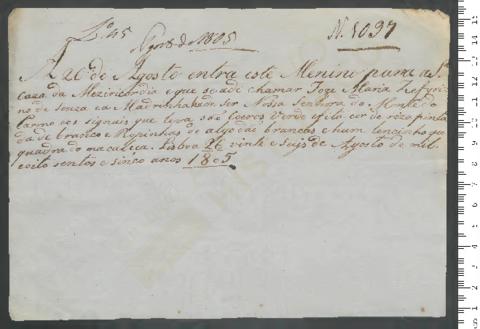 Lo 45
Agosto de 1805
N. 1037
A 26 de Agosto entra este Menino para a St.
caza da Meziricordia e que se ade chamar Joze Maria Zefyri
no de Souza ea Madrinha ade ser Nossa Senhora do Monte do
Carmo eos signais que leva são Coeros Verde e fita cor de roza pinta
da de branco e Ropinhas de algodão brancas e hum lencinho
quadrado na cabeça. Lisboa 26 vinte e seis de Agosto de mil
e oito sentos e sinco anos 1805